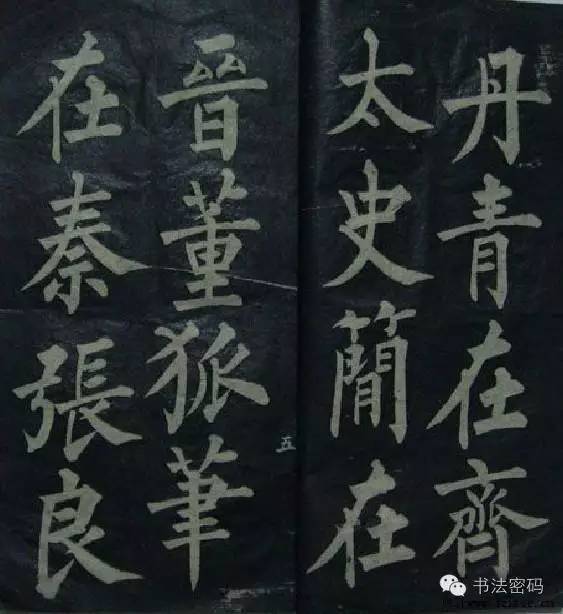 丹青在齊
太史簡在
晉董狐筆
在秦張良
五
书法密码